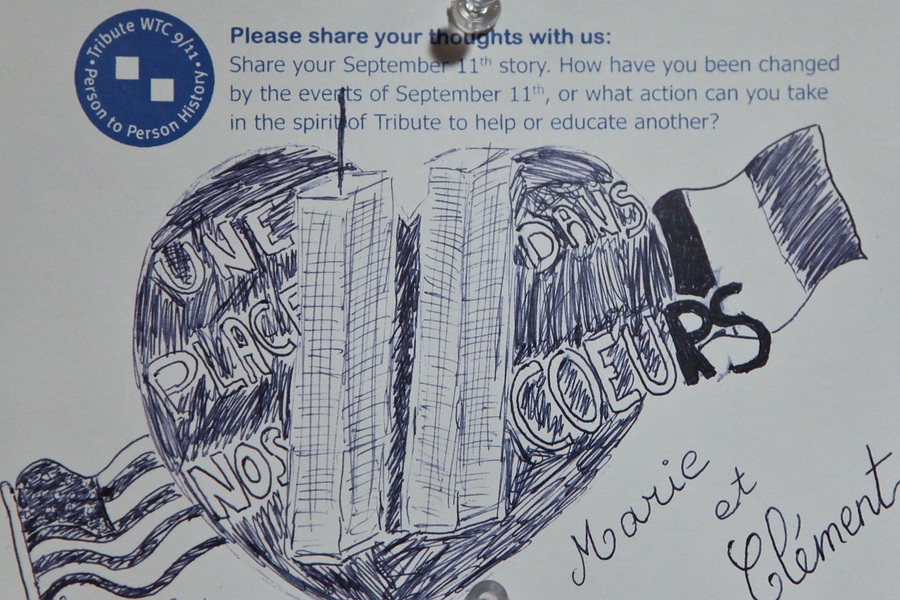 Tribute WTC 9/11 •
Person to Person History •
Please share your thoughts with us:
Share your September 11th story. How have you been changed
by the events of September 11th, or what action can you take
in the spirit of Tribute to help or educate another?
UNE
PLACE
DANS
NOS
COEURS
Marie
et
Clément